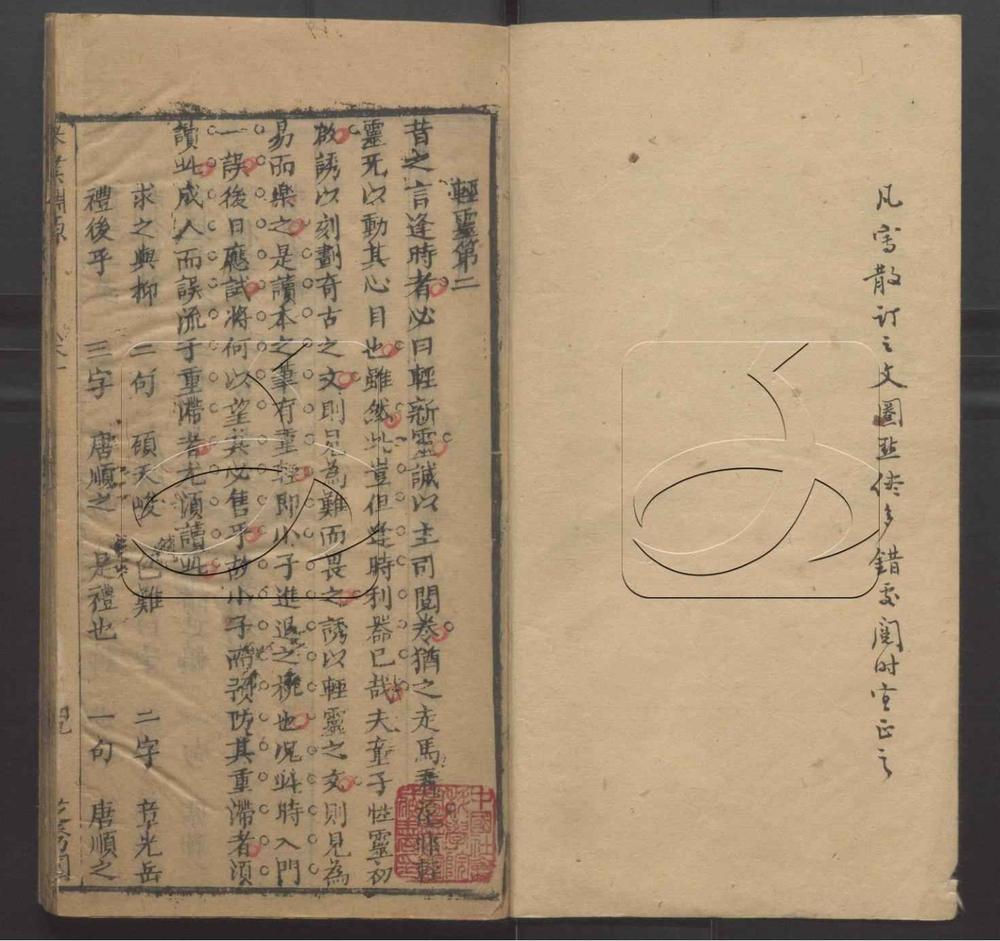 凡寫散訂之文圈點俱多錯要閱時宜正之
輕靈第二
昔之言逢時者必曰輕新靈誠以主司閱卷猶之走馬看花非輕
靈無以動其心目也雖然此豈但逢時利器已哉夫童子性靈初
啟誘以刻劃奇古之文則見為難而畏之誘以輕靈之文則見為
易而樂之是讀本之筆有重輕即小子進退之機也況此時入門
一誤後日應試將何以望其必售乎故小子而預防其重滯者須
讀此成人而誤流于重滯者尤須讀此
求之與抑 二句 碩天峻 色難 二字 章光岳
禮後乎 三字 唐順之 是禮也 一句 唐順之